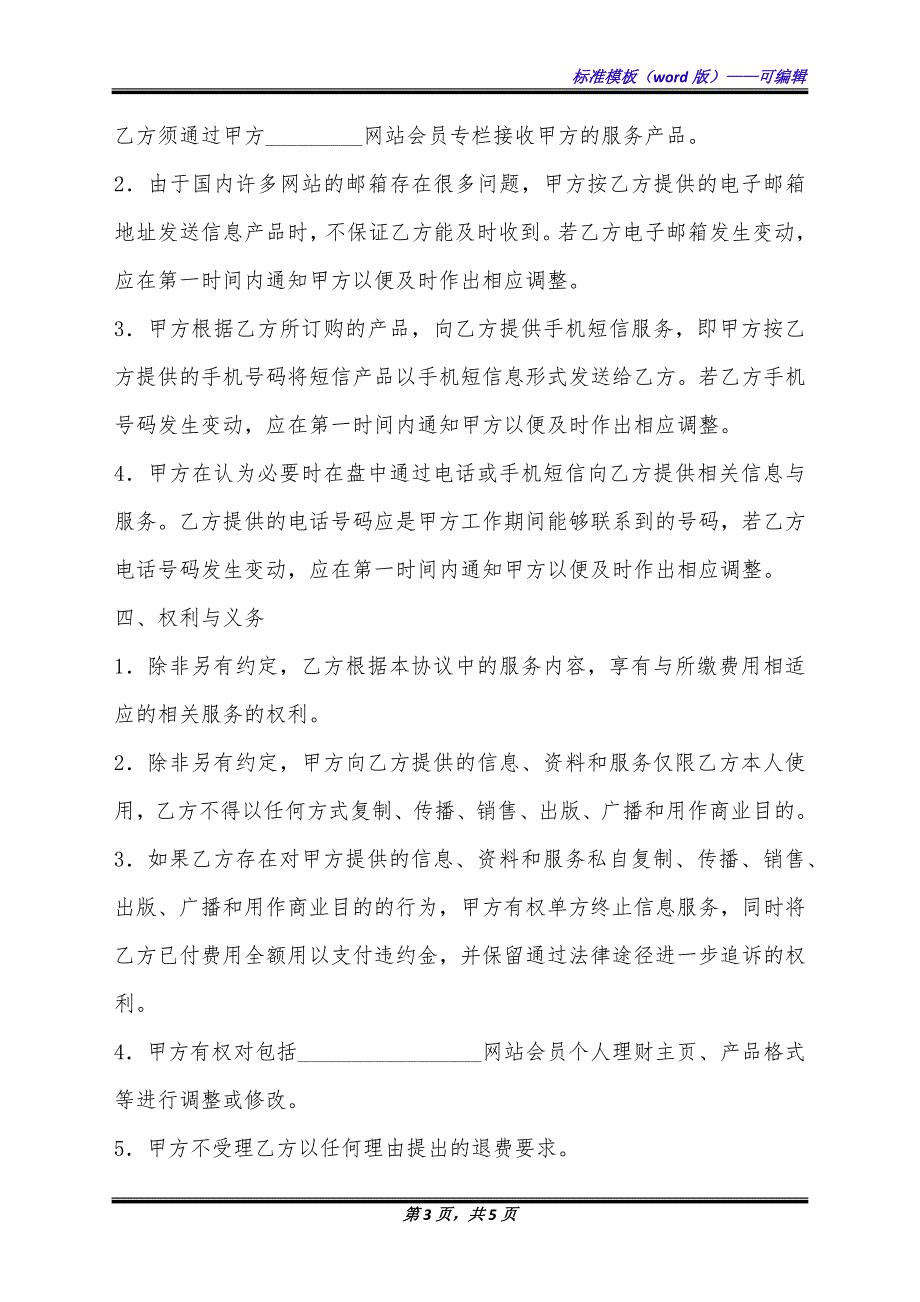 标准模板（word 版）——可编辑
乙方须通过甲方_________网站会员专栏接收甲方的服务产品。
2．由于国内许多网站的邮箱存在很多问题，甲方按乙方提供的电子邮箱
地址发送信息产品时，不保证乙方能及时收到。若乙方电子邮箱发生变动，
应在第一时间内通知甲方以便及时作出相应调整。
3．甲方根据乙方所订购的产品，向乙方提供手机短信服务，即甲方按乙
方提供的手机号码将短信产品以手机短信息形式发送给乙方。若乙方手机
号码发生变动，应在第一时间内通知甲方以便及时作出相应调整。
4．甲方在认为必要时在盘中通过电话或手机短信向乙方提供相关信息与
服务。乙方提供的电话号码应是甲方工作期间能够联系到的号码，若乙方
电话号码发生变动，应在第一时间内通知甲方以便及时作出相应调整。
四、权利与义务
1．除非另有约定，乙方根据本协议中的服务内容，享有与所缴费用相适
应的相关服务的权利。
2．除非另有约定，甲方向乙方提供的信息、资料和服务仅限乙方本人使
用，乙方不得以任何方式复制、传播、销售、出版、广播和用作商业目的。
3．如果乙方存在对甲方提供的信息、资料和服务私自复制、传播、销售、
出版、广播和用作商业目的的行为，甲方有权单方终止信息服务，同时将
乙方已付费用全额用以支付违约金，并保留通过法律途径进一步追诉的权
利。
4．甲方有权对包括_________________网站会员个人理财主页、产品格式
等进行调整或修改。
5．甲方不受理乙方以任何理由提出的退费要求。
第 3 页，共 5 页